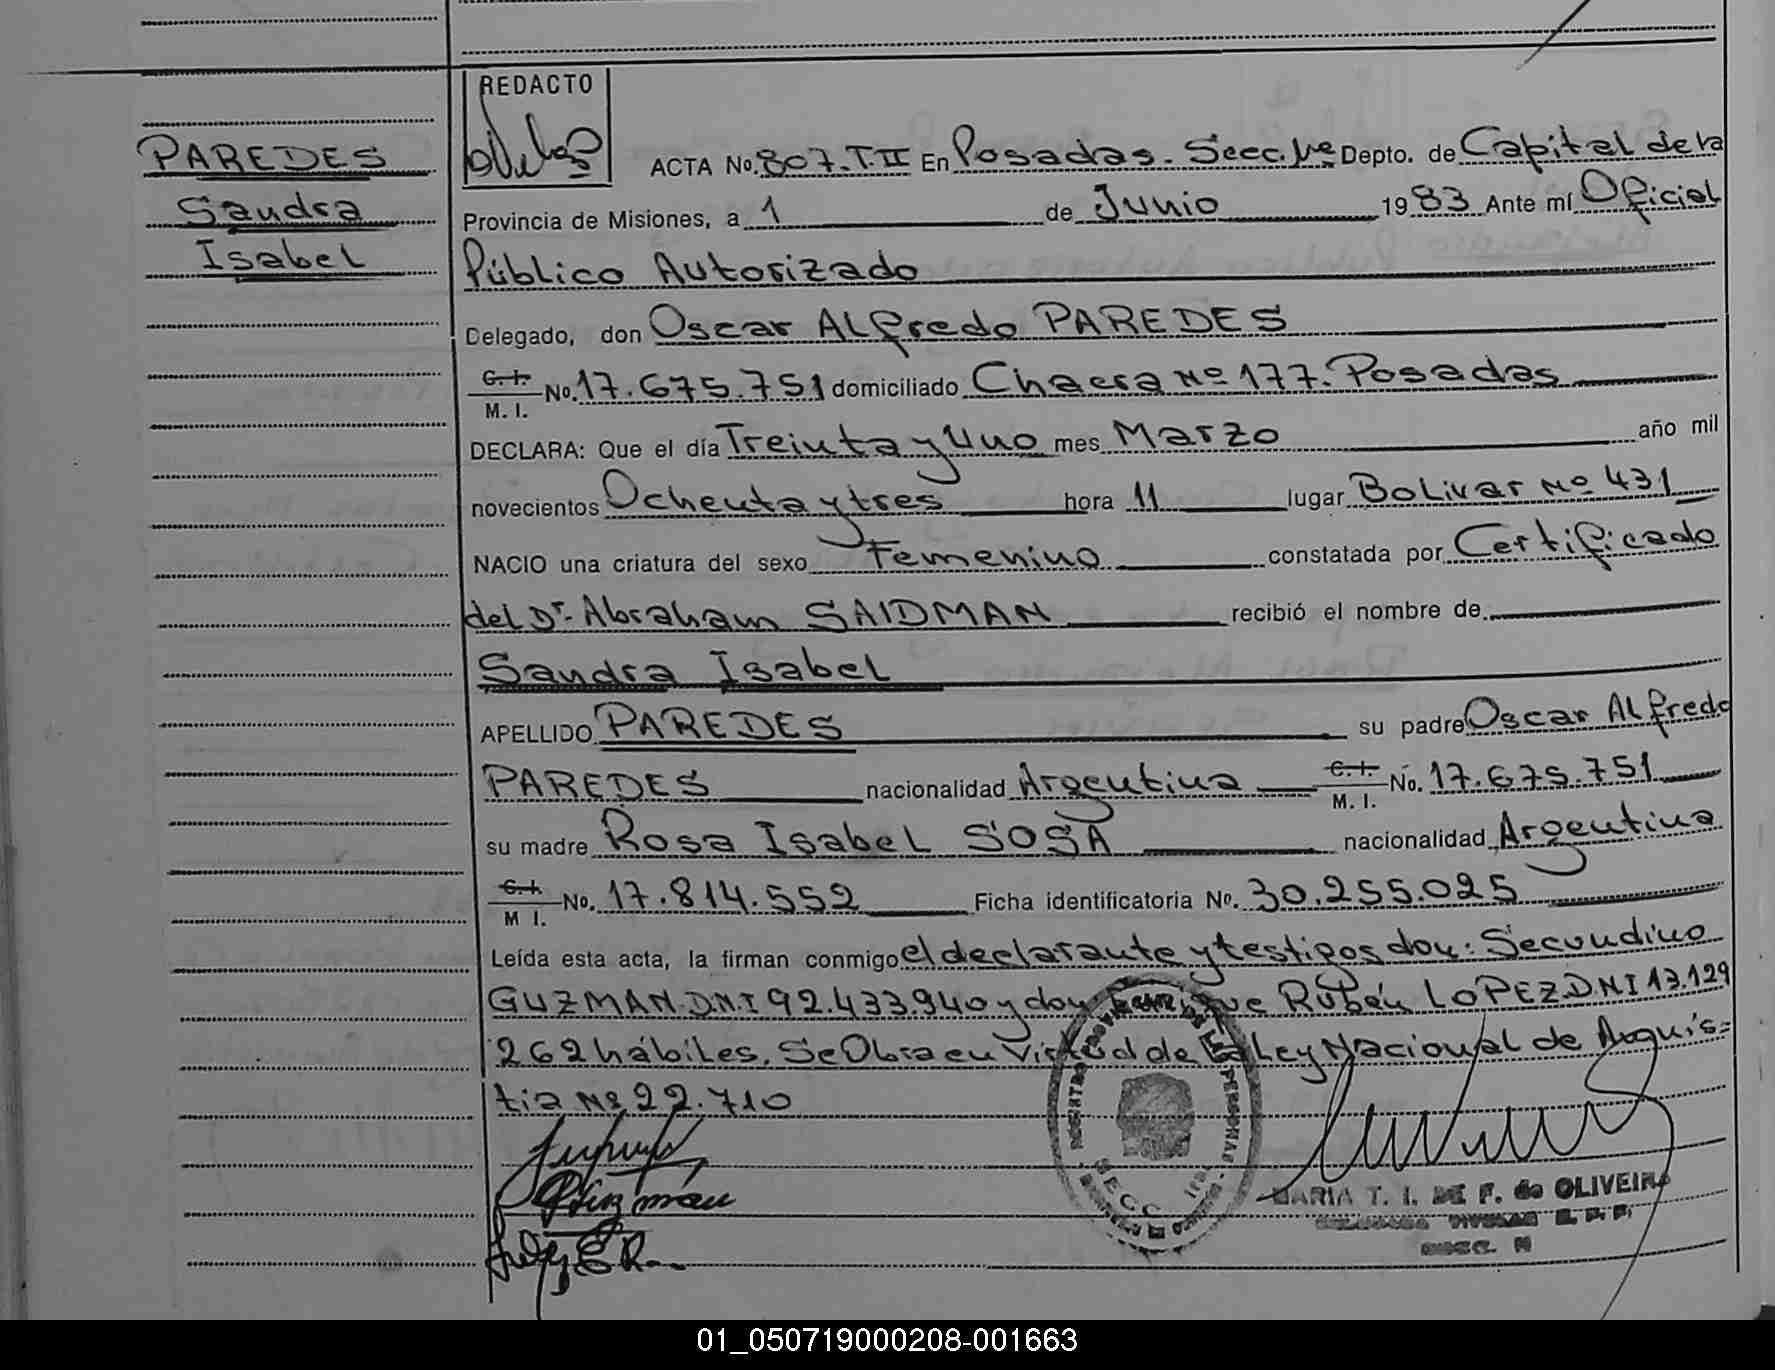 REDACTO
PAREDES
Sandra
Isabel
ACTA No. 807.T.II En Posadas. Secc. 1ra Depto. de Capital de la
Provincia de Misiones, a 1 de Junio 1983 Ante mí Oficial
Público Autorizado
Delegado, don Oscar Alfredo PAREDES
C. I. M. I. No. 17.675.751 domiciliado Chacra Nº 177. Posadas
DECLARA: Que el día Treinta y Uno mes Marzo año mil
novecientos Ochenta y tres hora 11 lugar Bolivar Nº 431
NACIO una criatura del sexo Femenino constatada por Certificado
del Dr. Abraham SAIDMAN recibió el nombre de
Sandra Isabel
APELLIDO PAREDES su padre Oscar Alfredo
PAREDES nacionalidad Argentina C. I. M. I. No. 17.675.751
su madre Rosa Isabel SOSA nacionalidad Argentina
C. I. M I. No. 17.814.552 Ficha identificatoria No. 30.255.025
Leída esta acta, la firman conmigo el declarante y testigos don: Secundino
GUZMAN. D.N.I 92.433.940 y don Enrique Rubén LOPEZ DNI 13.129
262 hábiles. Se Obra en Virtud de la Ley Nacional de Amnis=
tia Nº 22.710
Guzman
MARIA T. I. DE F. de OLIVEIRA
SECC.
01_050719000208-001663